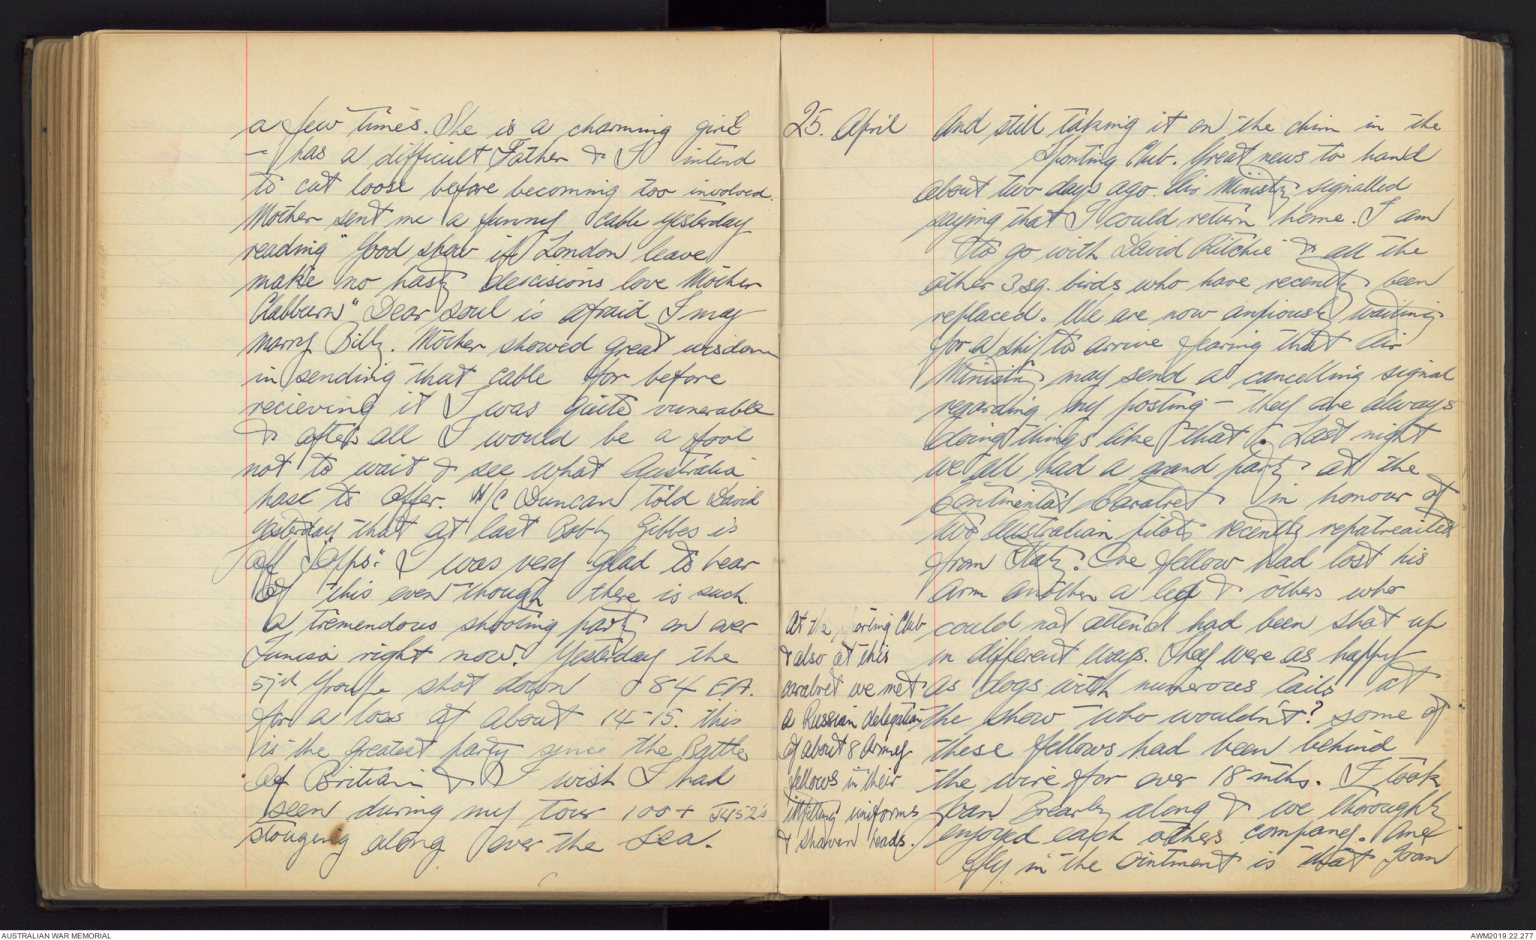 a few times. She is a charming girl
- has a difficult Father & I intend
to cut loose before becoming too involved.
Mother sent me a funny cable yesterday
reading "Good show if London leave
make no hasty descisions love Mother
Clabburn" Dear soul is afraid I may
marry Billy. Mother showed great wisdom
in sending that cable for before
recieving it I was quite vunerable
& after all I would be a fool
not to wait & see what Australia
hase to offer. W/C Duncan told David
yesterday that at last Bobby Gibbes is
off "Opps." I was very glad to hear
of this even though there is such
a tremendous shooting party on over
Tunisa right now. Yesterday the
57th Groupe shot down 84 EA.
for a loss of about 14-15. this
is the greatest party since the Battle
of Britiain & I wish I had
seen during my tour 100+ JU52's
stougeing along over the sea.
25. April And still taking it on the chin in the
Sporting Club. Great news to hand
about two days ago. Air Ministry signalled
saying that I could return home. I am
to go with David Ritchie & all the
other 3 sq. birds who have recently been
replaced. We are now anxiously waiting
for a ship to arrive fearing that Air
Ministry may send a cancelling signal
regarding my posting - they are always
doing things like that. Last night
we all had a grand party at the
Continental Cavabret in honour of
two Australian pilots recently repatreaited
from Italy. One fellow had lost his
arm another a leg & others who
could not attend had been shot up
in different ways. They were as happy
as dogs with numerous tails at
the show - who wouldn't? some of
these fellows had been behind
the wire for over 18 mths. I took
Joan Brearly along & we thoroughly
enjoyed each others company. One
fly in the ointment is that Joan
At the Sporting Club
& also at this
cavabret we met
a Russian delegation
of about 8 Army
fellows in their
illfitting uniforms
& shaven heads.
AUSTRALIAN WAR MEMORIAL
AWM2019.22.277